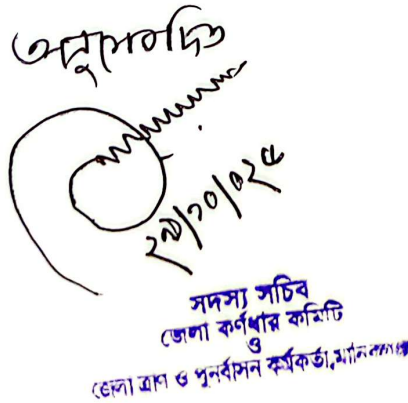 অনুমোদিত
২৯/১০/২০২৫
সদস্য সচিব
জেলা কর্ণধার কমিটি
ও
জেলা ত্রাণ ও পুনর্বাসন কর্মকর্তা,